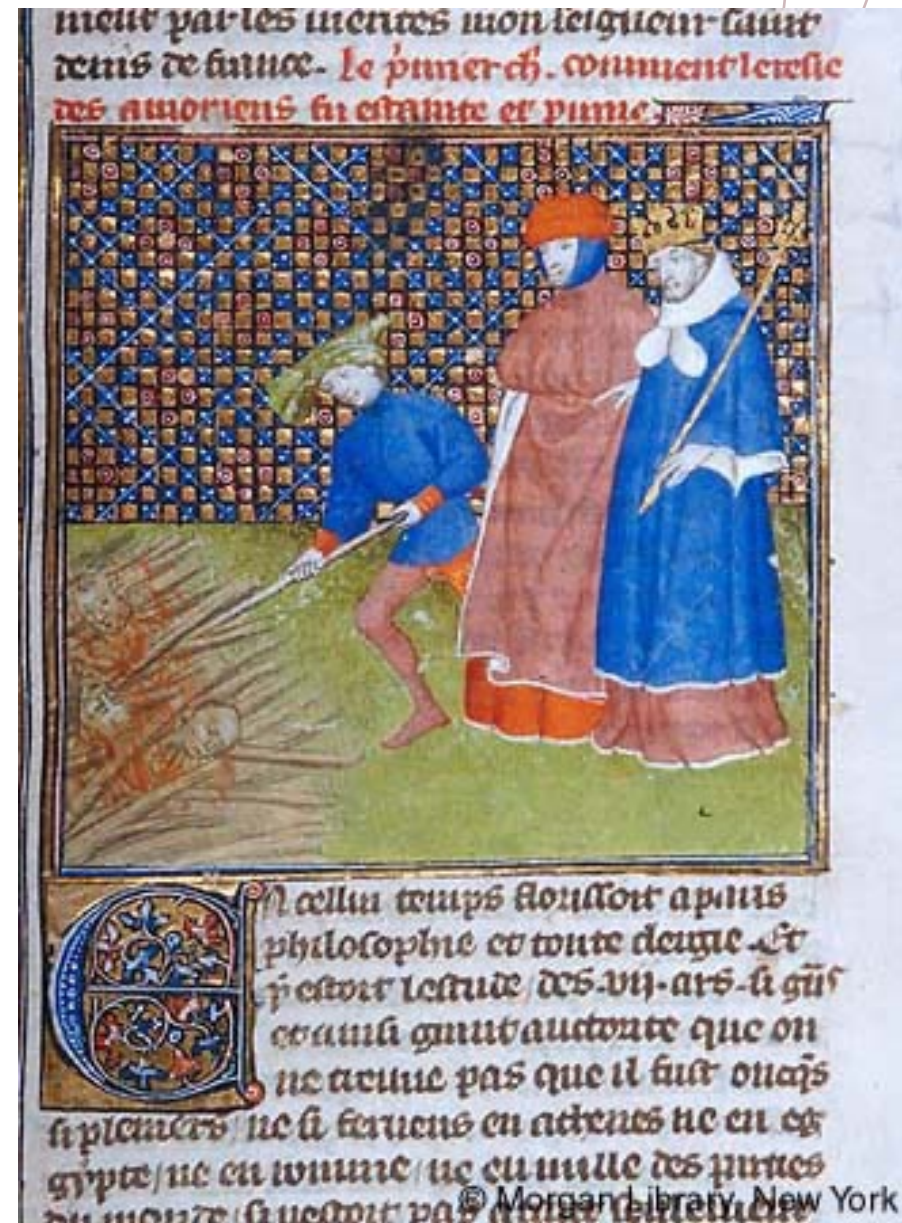 ment par les merites mon seigneur saint
denis de france. Le p̉mier ch̉. comment leresie
des amoriens fu estainte et punie.
En cellui temps flourissoit a paris
philosophie et toute clergie. Et
y estoit lestude des .vii. ars. si gñt
et en si grant auctorite que on
ne treuue pas que il fust oncq̃s
si pleniers / ne si feruens en athenes ne en eg
gypte / ne en romme / ne en nulle des parties
du monde / si nestoit pas
© Morgan Library, New York